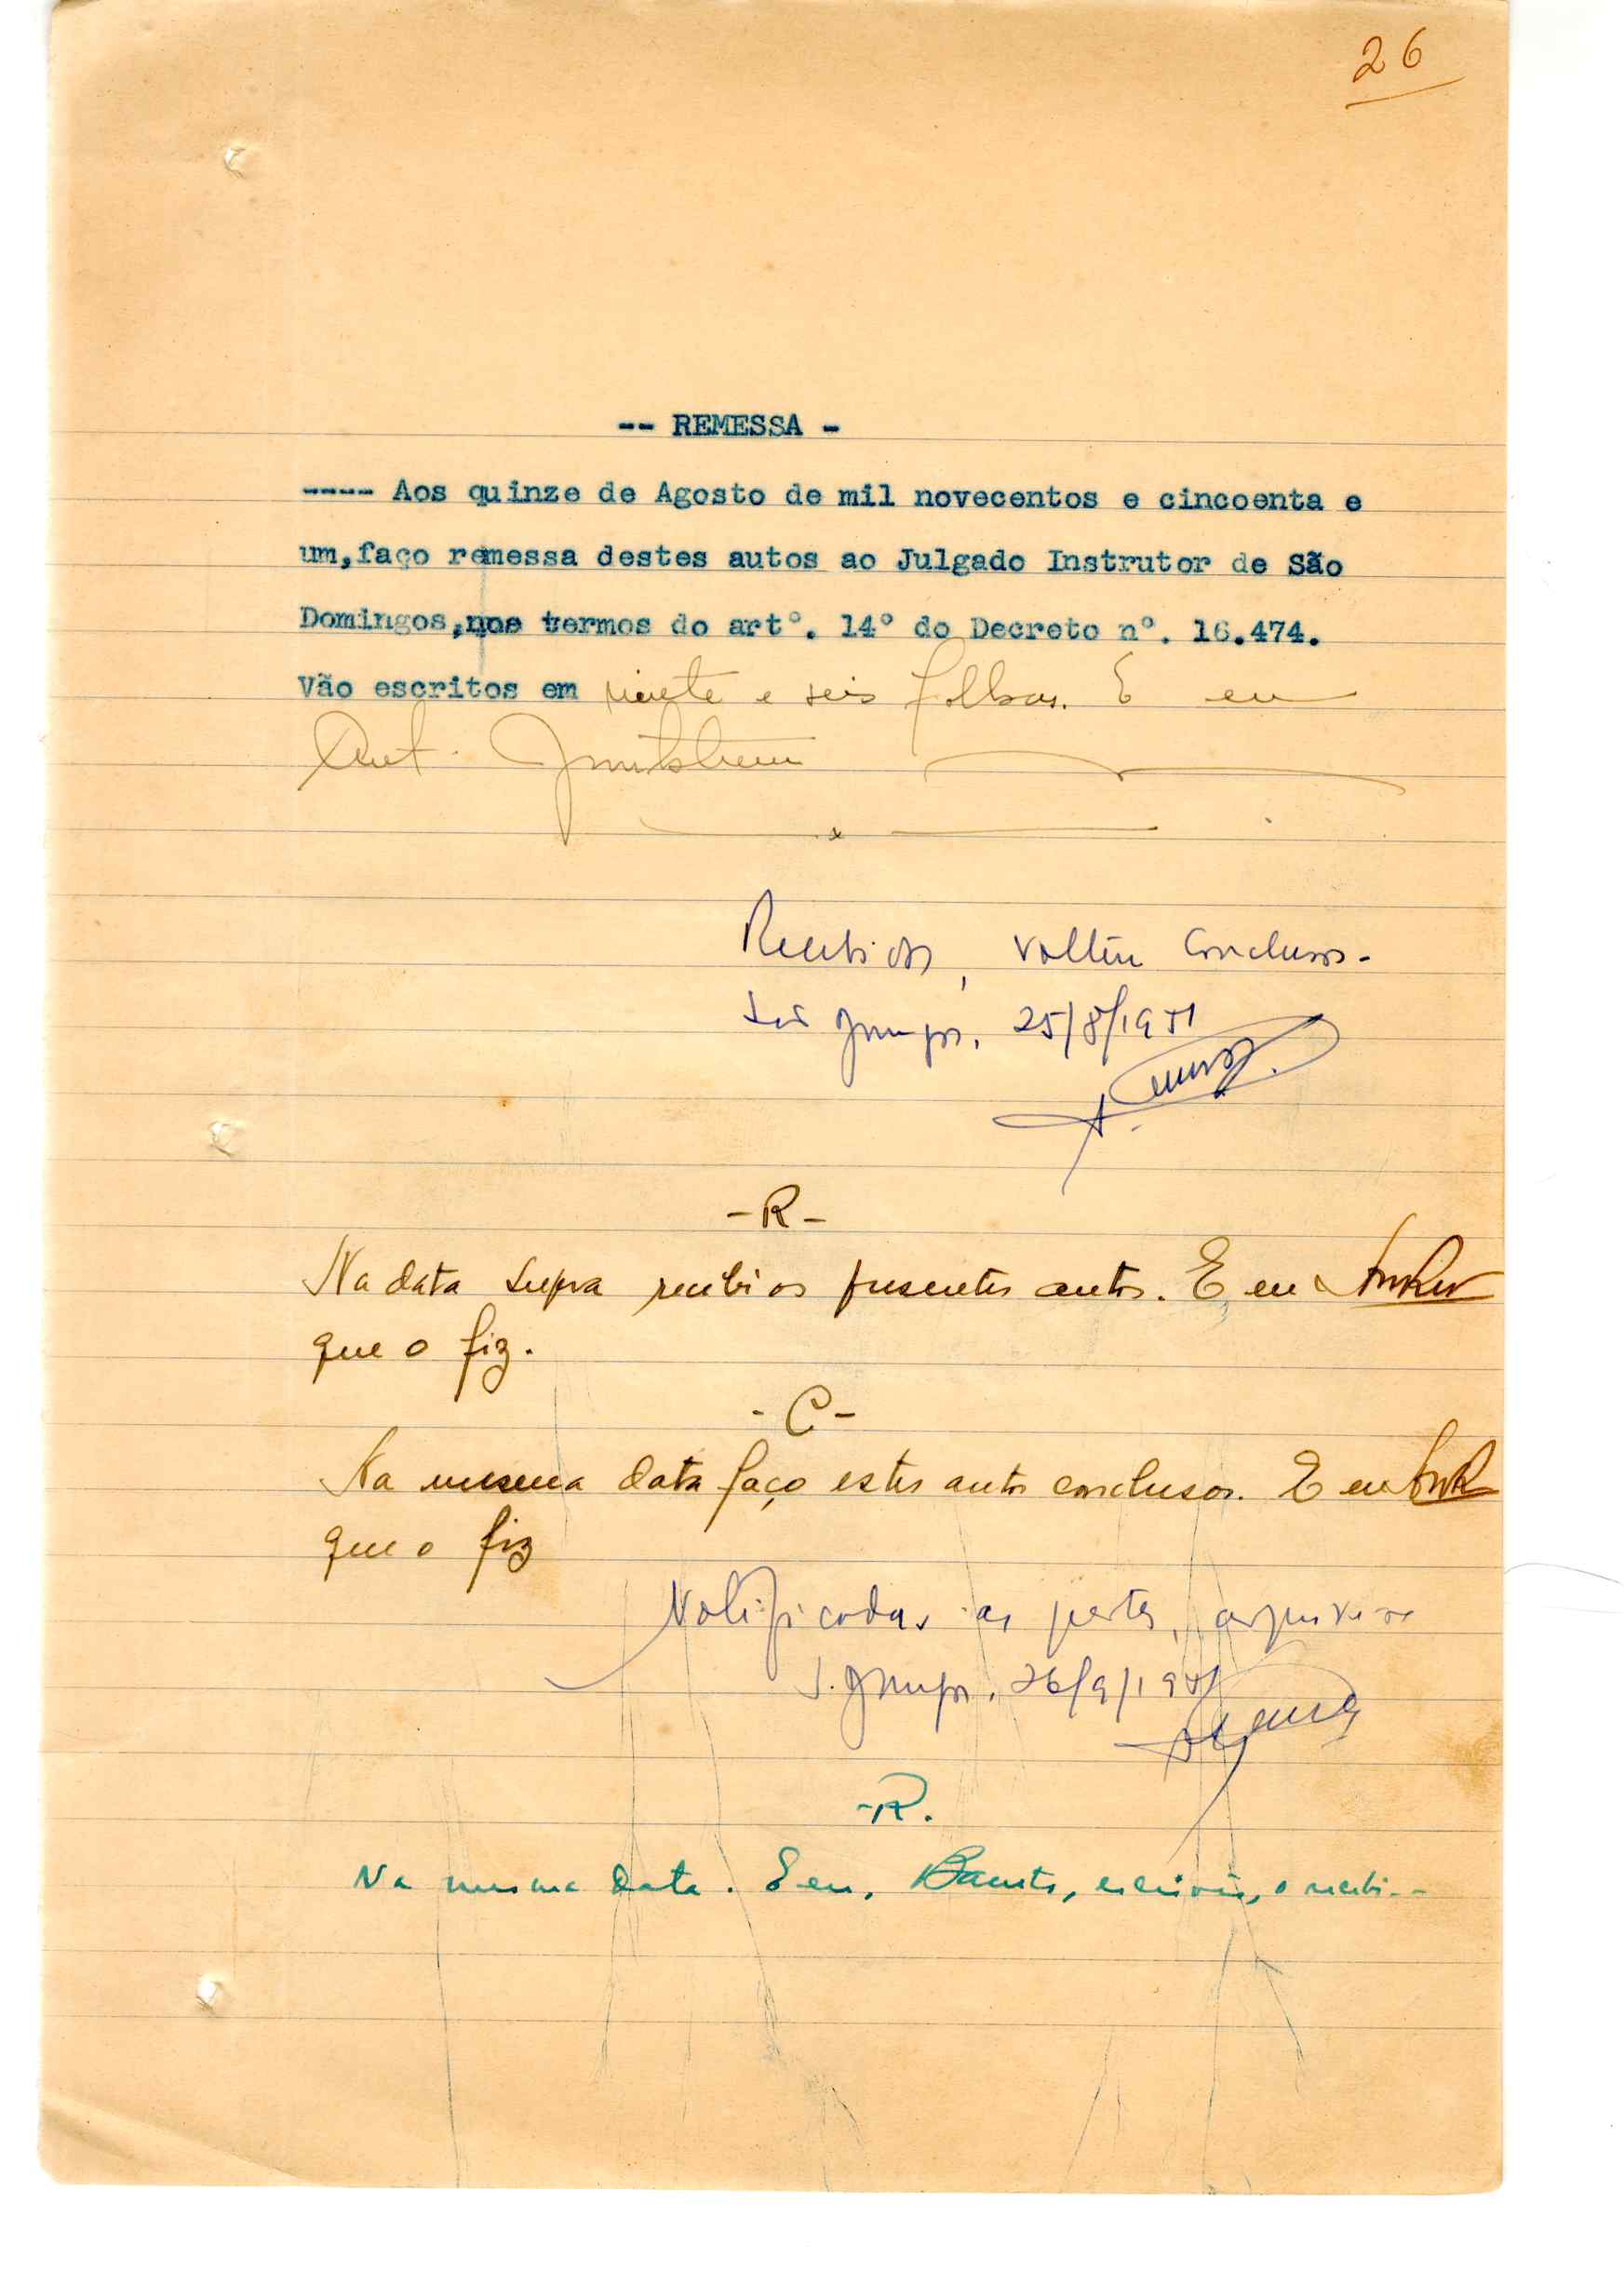 26
-- REMESSA -
---- Aos quinze de Agosto de mil novecentos e cincoenta e
um,faço remessa destes autos ao Julgado Instrutor de São
Domingos,nos termos do artº. 14º do Decreto nº. 16.474.
Vão escritos em vinte e seis folhas. E eu
Recebidos, voltem conclusos.
São Domingos, 25/8/1951
-R-
Na data supra recebi os presentes autos. E eu
que o fiz.
-C-
Na mesma data faço estes autos conclusos. E eu
que o fiz
Notificadas as partes, arquive-se
S. Domingos, 26/9/1951
-R.
Na mesma data. E eu, escrivão, o recebi.--